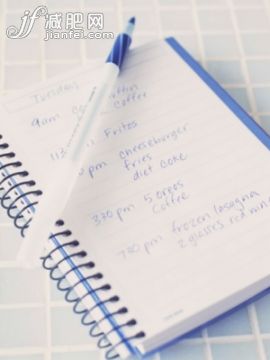 减肥网
jianfei.com
Tuesday
9am
coffee
Fritos
pm cheeseburger
fries
diet coke
330 pm 5 oreos
coffee
pm frozen lasagna
2 glasses red wine